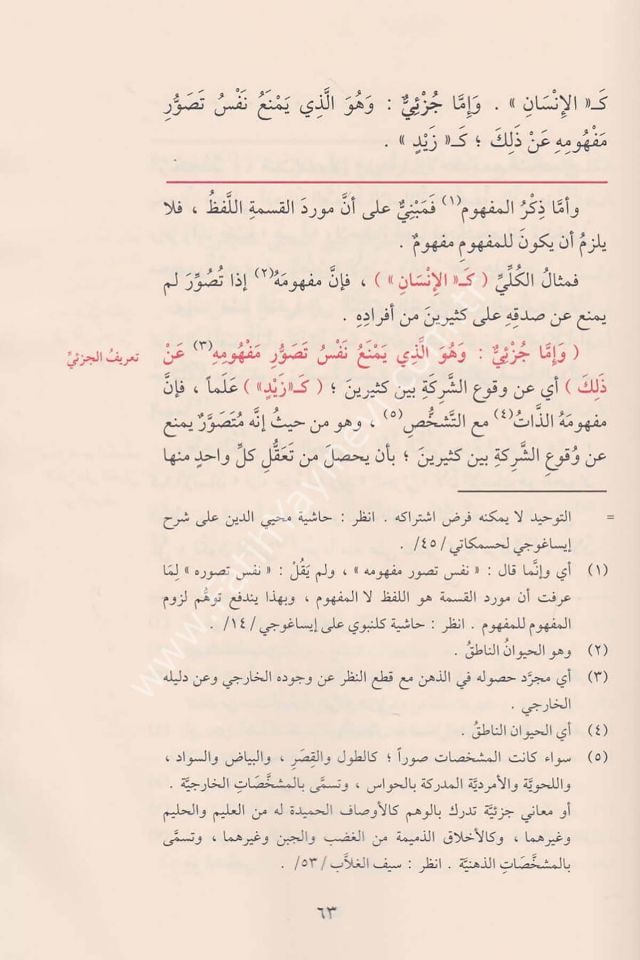 كَـ« الإِنْسَانِ » . وَإِمَّا جُزْئِيٌّ : وَهُوَ الَّذِي يَمْنَعُ نَفْسُ تَصَوُّرِ
مَفْهُومِهِ عَنْ ذَلِكَ ؛ كَـ« زَيْدٍ » .
وأمَّا ذِكْرُ المفهومِ(١) فَمَبْنِيٌّ على أنَّ موردَ القسمةِ اللَّفظُ ، فلا
يلزمُ أن يكونَ للمفهومِ مفهومٌ .
فمثالُ الكُلِّيِّ ( كَـ« الإِنْسَانِ » ) ، فإنَّ مفهومَهُ(٢) إذا تُصُوِّرَ لم
يمنع عن صدقِهِ على كثيرينَ من أفرادِهِ .
( وَإِمَّا جُزْئِيٌّ : وَهُوَ الَّذِي يَمْنَعُ نَفْسُ تَصَوُّرِ مَفْهُومِهِ(٣) عَنْ
تعريفُ الجزئيِّ
ذَلِكَ ) أي عن وقوع الشَّرِكَةِ بين كثيرينَ ؛ ( كَـ«زَيْدٍ» ) عَلَماً ، فإنَّ
مفهومَهُ الذَّاتُ(٤) مع التَّشخُّصِ(٥) ، وهو من حيثُ إنَّه مُتَصَوَّرٌ يمنع
عن وُقوعِ الشَّرِكةِ بين كثيرينَ ؛ بأن يحصلَ من تَعَقُّلِ كلِّ واحدٍ منها
= التوحيد لا يمكنه فرض اشتراكه . انظر : حاشية محيي الدين على شرح
إيساغوجي لحسمكاتي /٤٥/ .
(١) أي وإنَّما قال : « نفس تصور مفهومه » ، ولم يَقُلْ : « نفس تصوره » لِمَا
عرفت أن مورد القسمة هو اللفظ لا المفهوم ، وبهذا يندفع توهُّم لزوم
المفهوم للمفهوم . انظر : حاشية كلنبوي على إيساغوجي /١٤/ .
(٢) وهو الحيوانُ الناطقُ .
(٣) أي مجرَّد حصوله في الذهن مع قطع النظر عن وجوده الخارجي وعن دليله
الخارجي .
(٤) أي الحيوان الناطقُ .
(٥) سواء كانت المشخصات صوراً ؛ كالطول والقِصَرِ ، والبياض والسواد ،
واللحويَّة والأمرديَّة المدركة بالحواس ، وتسمَّى بالمشخَّصَاتِ الخارجيَّة .
أو معاني جزئيَّة تدرك بالوهم كالأوصاف الحميدة له من العليم والحليم
وغيرهما ، وكالأخلاق الذميمة من الغضب والجبن وغيرهما ، وتسمَّى
بالمشخَّصَاتِ الذهنيَّة . انظر : سيف الغلَّاب /٥٣/ .
٦٣